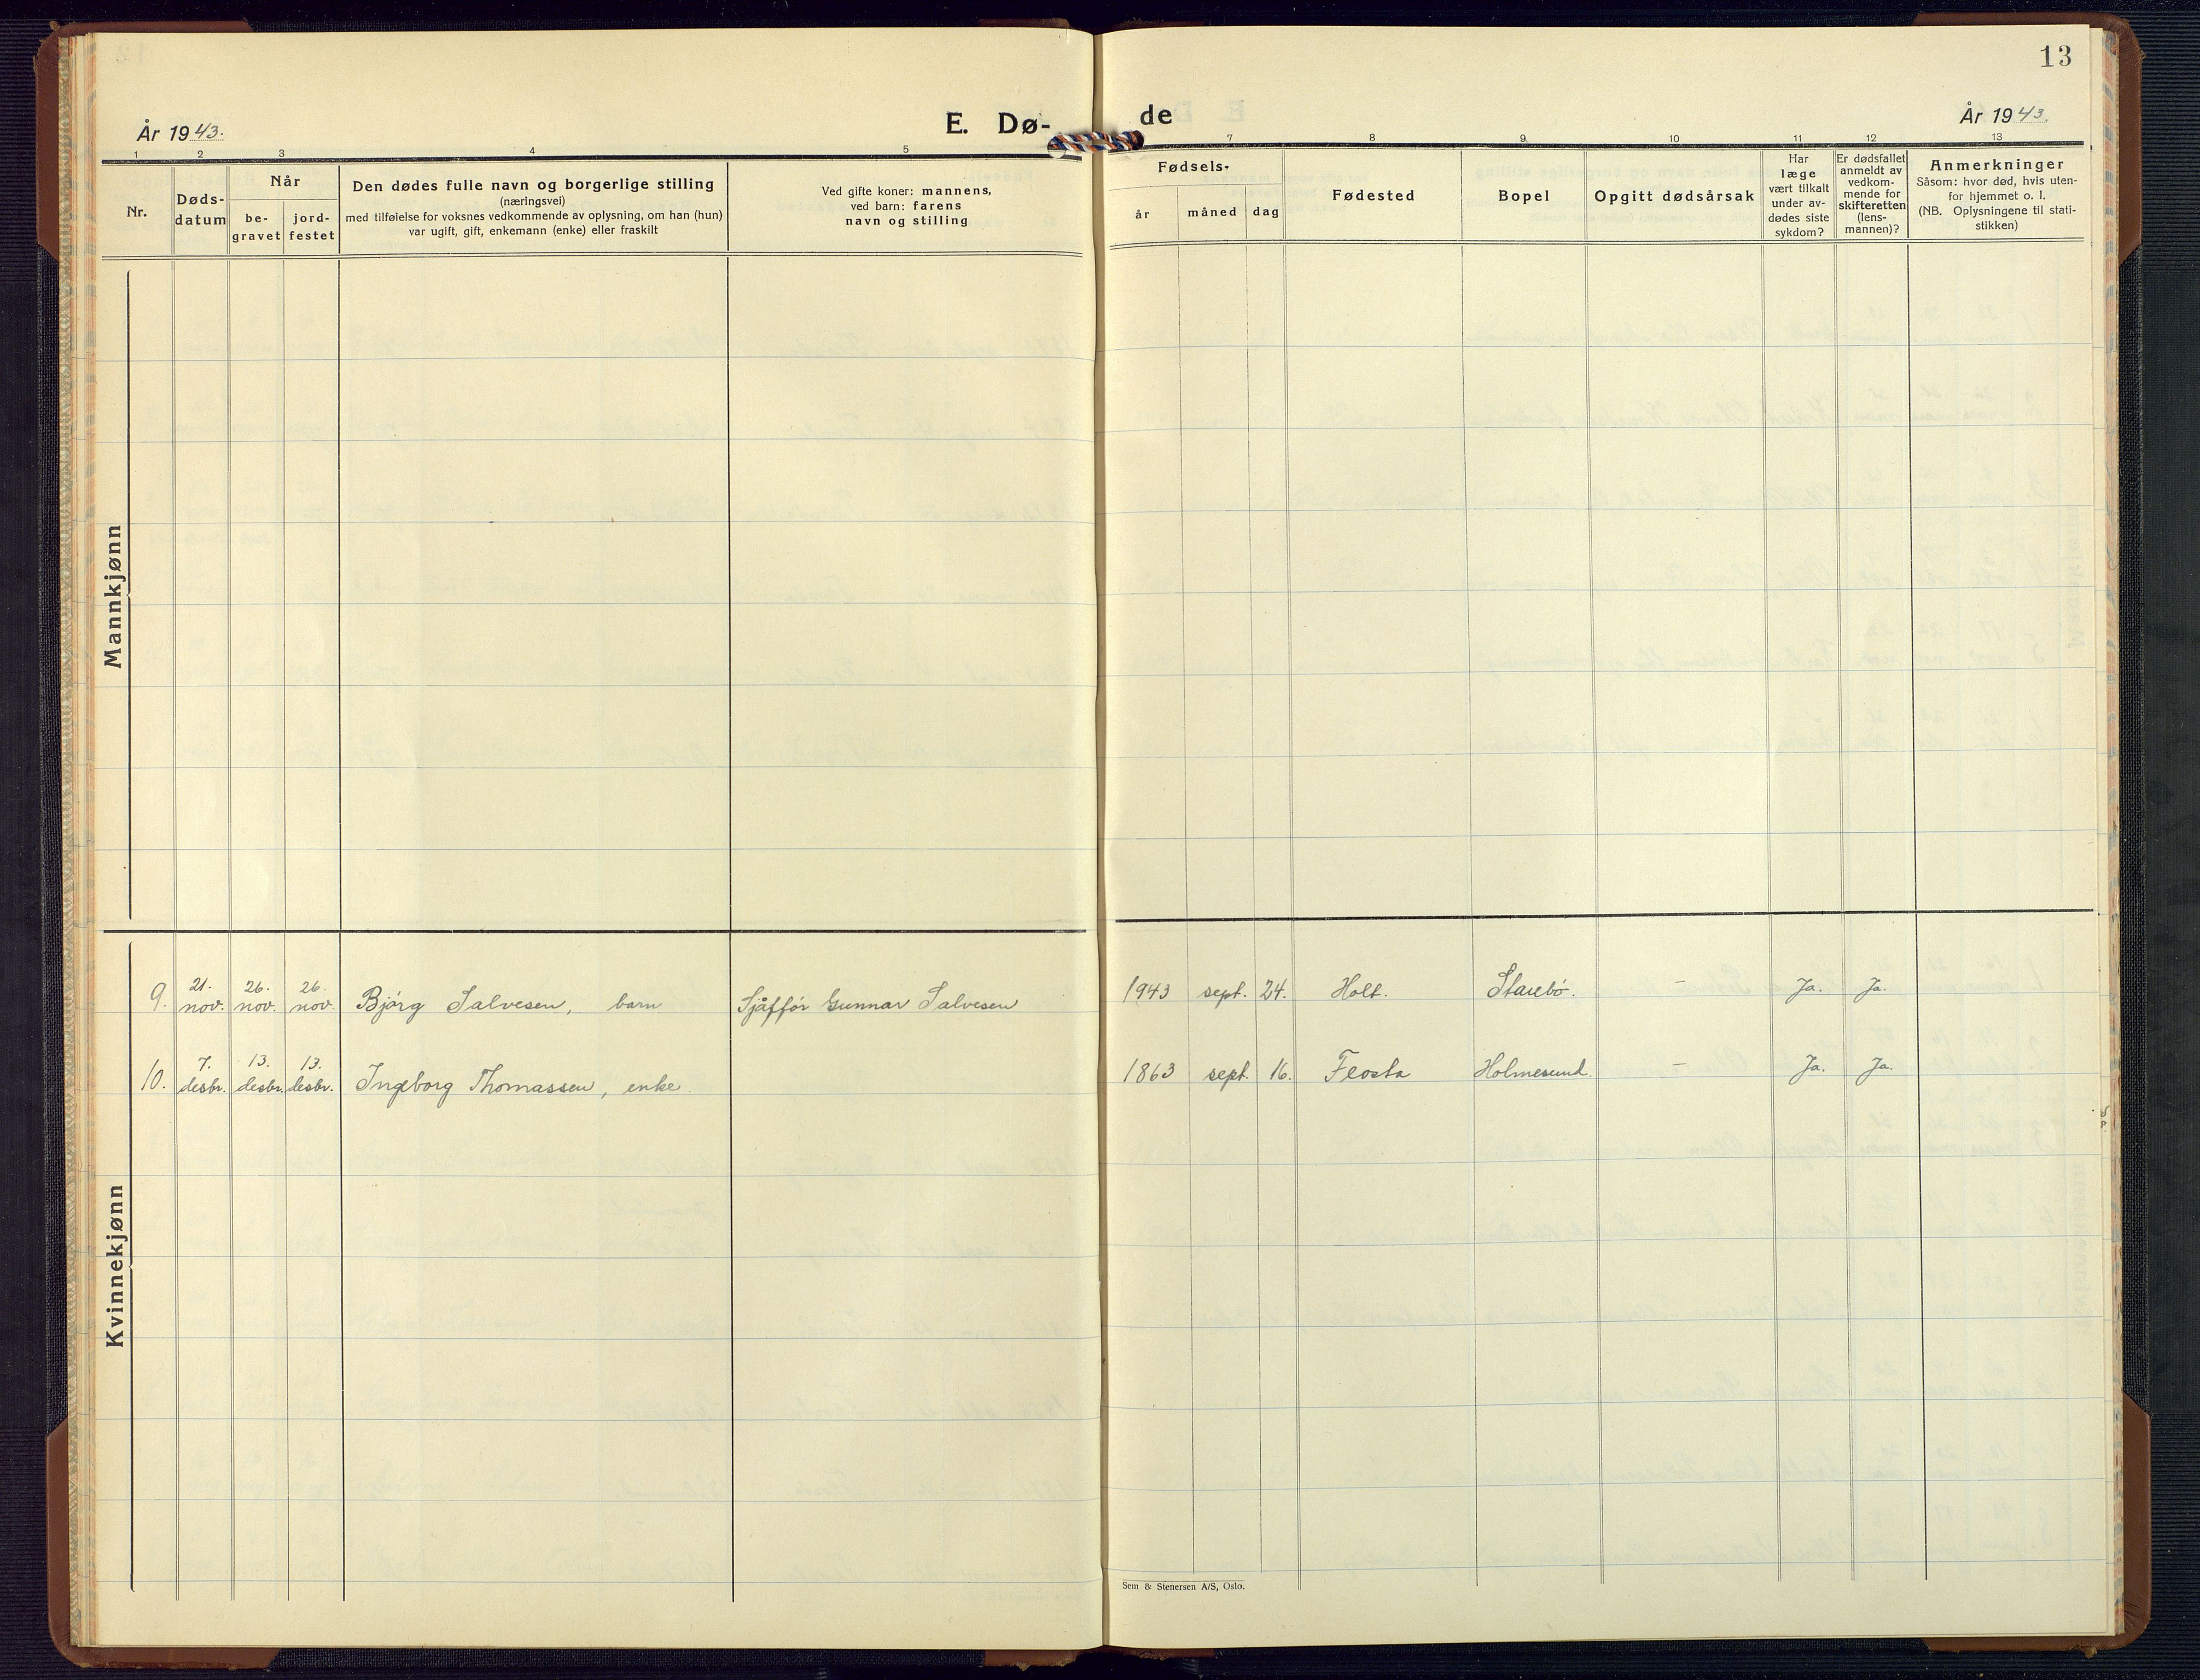 13
År 1943.
E. Dø-
de
År 1943.
1 2 3 4 5
7 8 9. 10 11 12 13
Nr.
Døds-
datum
Når
be-
gravet
jord-
festet
Den dødes fulle navn og borgerlige stilling
(næringsvei)
med tilføielse for voksnes vedkommende av oplysning, om han (hun)
var ugift, gift, enkemann (enke) eller fraskilt
Ved gifte koner: mannens,
ved barn: farens
navn og stilling
Fødsels-
år
måned
dag
Fødested
Bopel
Opgitt dødsårsak
Har
læge
vært tilkalt
under av-
dødes siste
sykdom?
Er dødsfallet
anmeldt av
vedkom-
mende for
skifteretten
(lens-
mannen)?
Anmerkninger
Såsom: hvor død, hvis uten-
for hjemmet o. l.
(NB. Oplysningene til stati-
stikken)
Mannkjønn
Kvinnekjønn
21. 26. 26.
9. nov. nov. nov. Bjørg Salvesen, barn Sjåffør Gunnar Salvesen 1943 sept. 24. Holt. Staubø. — Ja. Ja.
7. 13. 13.
10. desbr. desbr. desbr. Ingeborg Thomassen, enke. 1863 sept. 16. Flosta Holmesund. — Ja. Ja.
Sem & Stenersen A/S, Oslo.